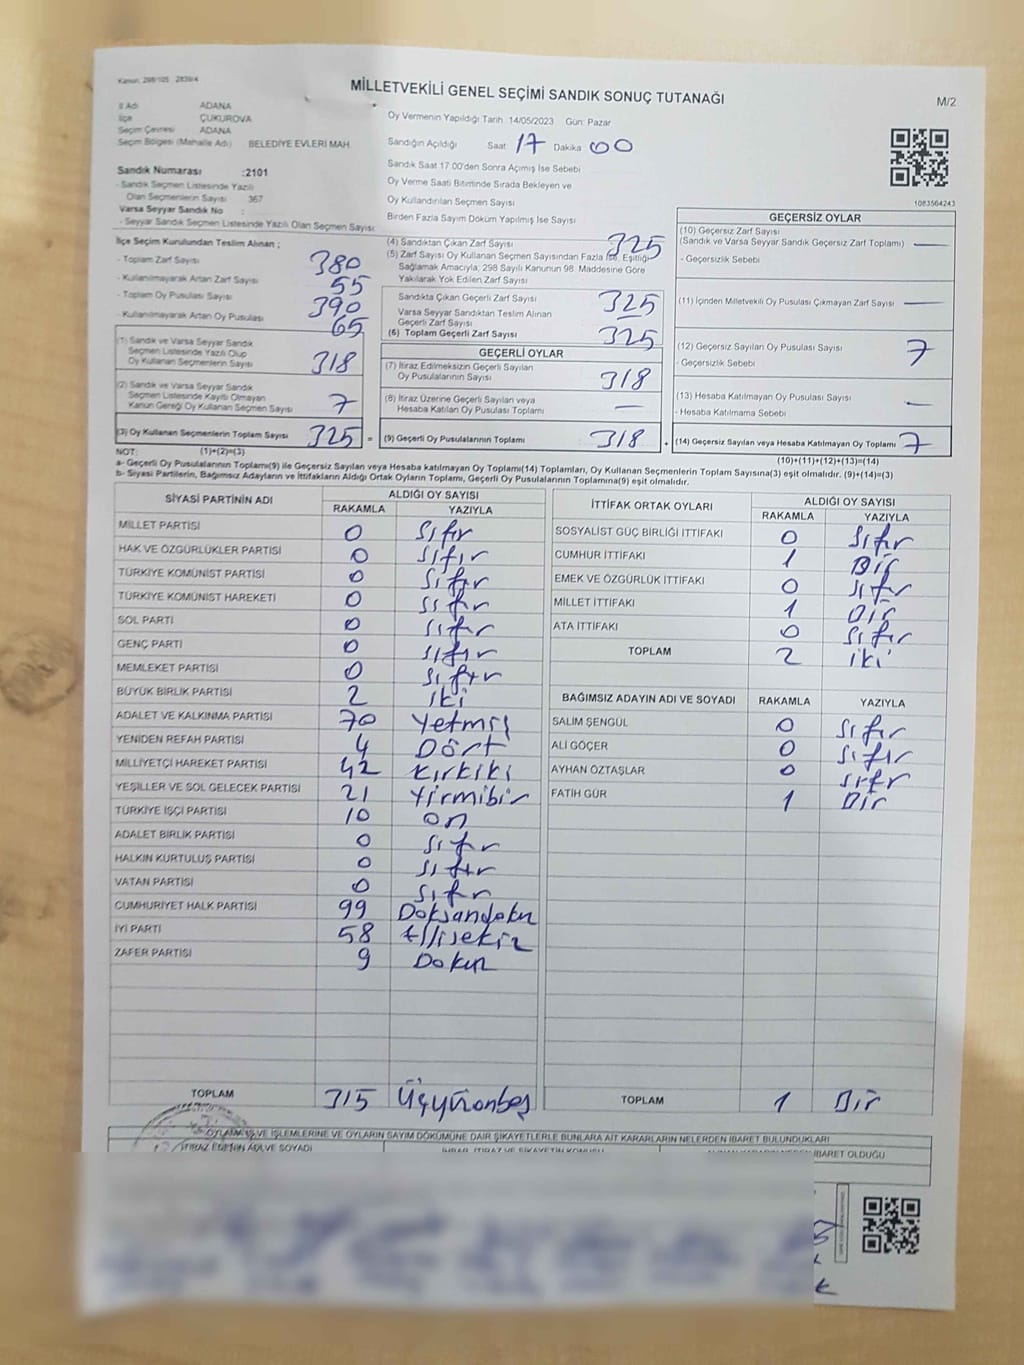 Kanun: 298/105 2839/4
MİLLETVEKİLİ GENEL SEÇİMİ SANDIK SONUÇ TUTANAĞI
M/2
İl Adı ADANA
İlçe ÇUKUROVA
Seçim Çevresi ADANA
Seçim Bölgesi (Mahalle Adı) BELEDİYE EVLERİ MAH.
Sandık Numarası :2101
- Sandık Seçmen Listesinde Yazılı
Olan Seçmenlerin Sayısı 367
Varsa Seyyar Sandık No :
- Seyyar Sandık Seçmen Listesinde Yazılı Olan Seçmen Sayısı:
Oy Vermenin Yapıldığı Tarih: 14/05/2023 Gün: Pazar
Sandığın Açıldığı Saat: 17 Dakika 00
Sandık Saat 17:00'den Sonra Açılmış İse Sebebi
Oy Verme Saati Bitiminde Sırada Bekleyen ve
Oy Kullandırılan Seçmen Sayısı
Birden Fazla Sayım Döküm Yapılmış İse Sayısı
1083564243
İlçe Seçim Kurulundan Teslim Alınan ;
- Toplam Zarf Sayısı 380
- Kullanılmayarak Artan Zarf Sayısı 55
- Toplam Oy Pusulası Sayısı 390
- Kullanılmayarak Artan Oy Pusulası 65
(1) Sandık ve Varsa Seyyar Sandık
Seçmen Listesinde Yazılı Olup
Oy Kullanan Seçmenlerin Sayısı 318
(2) Sandık ve Varsa Seyyar Sandık
Seçmen Listesinde Kayıtlı Olmayan
Kanun Gereği Oy Kullanan Seçmen Sayısı 7
(3) Oy Kullanan Seçmenlerin Toplam Sayısı 325 =
(4) Sandıktan Çıkan Zarf Sayısı 325
(5) Zarf Sayısı Oy Kullanan Seçmen Sayısından Fazla İse, Eşitliği
Sağlamak Amacıyla, 298 Sayılı Kanunun 98. Maddesine Göre
Yakılarak Yok Edilen Zarf Sayısı
Sandıkta Çıkan Geçerli Zarf Sayısı 325
Varsa Seyyar Sandıktan Teslim Alınan
Geçerli Zarf Sayısı
(6) Toplam Geçerli Zarf Sayısı 325
GEÇERLİ OYLAR
(7) İtiraz Edilmeksizin Geçerli Sayılan
Oy Pusulalarının Sayısı 318
(8) İtiraz Üzerine Geçerli Sayılan veya
Hesaba Katılan Oy Pusulası Toplamı —
(9) Geçerli Oy Pusulalarının Toplamı 318 +
GEÇERSİZ OYLAR
(10) Geçersiz Zarf Sayısı
(Sandık ve Varsa Seyyar Sandık Geçersiz Zarf Toplamı) —
- Geçersizlik Sebebi
(11) İçinden Milletvekili Oy Pusulası Çıkmayan Zarf Sayısı —
(12) Geçersiz Sayılan Oy Pusulası Sayısı 7
- Geçersizlik Sebebi
(13) Hesaba Katılmayan Oy Pusulası Sayısı —
- Hesaba Katılmama Sebebi
(14) Geçersiz Sayılan veya Hesaba Katılmayan Oy Toplamı 7
NOT: (1)+(2)=(3)
(10)+(11)+(12)+(13)=(14)
a- Geçerli Oy Pusulalarının Toplamı(9) ile Geçersiz Sayılan veya Hesaba katılmayan Oy Toplamı(14) Toplamları, Oy Kullanan Seçmenlerin Toplam Sayısına(3) eşit olmalıdır. (9)+(14)=(3)
b- Siyasi Partilerin, Bağımsız Adayların ve İttifakların Aldığı Ortak Oyların Toplamı, Geçerli Oy Pusulalarının Toplamına(9) eşit olmalıdır.
SİYASİ PARTİNİN ADI ALDIĞI OY SAYISI
RAKAMLA YAZIYLA
MİLLET PARTİSİ 0 Sıfır
HAK VE ÖZGÜRLÜKLER PARTİSİ 0 Sıfır
TÜRKİYE KOMÜNİST PARTİSİ 0 Sıfır
TÜRKİYE KOMÜNİST HAREKETİ 0 Sıfır
SOL PARTİ 0 Sıfır
GENÇ PARTİ 0 Sıfır
MEMLEKET PARTİSİ 0 Sıfır
BÜYÜK BİRLİK PARTİSİ 2 iki
ADALET VE KALKINMA PARTİSİ 70 Yetmiş
YENİDEN REFAH PARTİSİ 4 Dört
MİLLİYETÇİ HAREKET PARTİSİ 42 Kırkiki
YEŞİLLER VE SOL GELECEK PARTİSİ 21 Yirmibir
TÜRKİYE İŞÇİ PARTİSİ 10 on
ADALET BİRLİK PARTİSİ 0 Sıfır
HALKIN KURTULUŞ PARTİSİ 0 Sıfır
VATAN PARTİSİ 0 Sıfır
CUMHURİYET HALK PARTİSİ 99 Doksandokuz
İYİ PARTİ 58 Ellisekiz
ZAFER PARTİSİ 9 Dokuz
TOPLAM 315 Üçyüzonbeş
İTTİFAK ORTAK OYLARI ALDIĞI OY SAYISI
RAKAMLA YAZIYLA
SOSYALİST GÜÇ BİRLİĞİ İTTİFAKI 0 Sıfır
CUMHUR İTTİFAKI 1 Bir
EMEK VE ÖZGÜRLÜK İTTİFAKI 0 Sıfır
MİLLET İTTİFAKI 1 Bir
ATA İTTİFAKI 0 Sıfır
TOPLAM 2 iki
BAĞIMSIZ ADAYIN ADI VE SOYADI RAKAMLA YAZIYLA
SALİM ŞENGÜL 0 Sıfır
ALİ GÖÇER 0 Sıfır
AYHAN ÖZTAŞLAR 0 Sıfır
FATİH GÜR 1 Bir
TOPLAM 1 Bir
OYLAMA İŞ VE İŞLEMLERİNE VE OYLARIN SAYIM DÖKÜMÜNE DAİR ŞİKAYETLERLE BUNLARA AİT KARARLARIN NELERDEN İBARET BULUNDUKLARI
İTİRAZ EDENİN ADI VE SOYADI
İBARET OLDUĞU